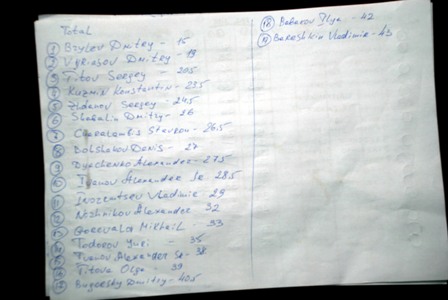 Total
1 Bzylev Dmitry - 15
2 Dmitry - 19
3 Titov Sergey - 20.5
4 Kuzmin Konstantin - 23.5
5 Zidanov Sergey - 24.5
6 Shabalin Dmitry - 26
7 Charalambis Stavrou - 26.5
8 Bolshakov Denis - 27
9 Dyachenko Alexander - 27.5
10 Ivanov Alexander 28.5
11 Inozemtsev Vladimir 29
12 Nozhnikov Alexander 32
13 Mikhail - 33
14 Todorov Yuri - 35
15 Ivanov Alexander - 38
16 Titova Olga - 39
17 Bogorsky Dmitry - 40.5
18 Ilya - 42
19 Bareshkin Vladimir - 43